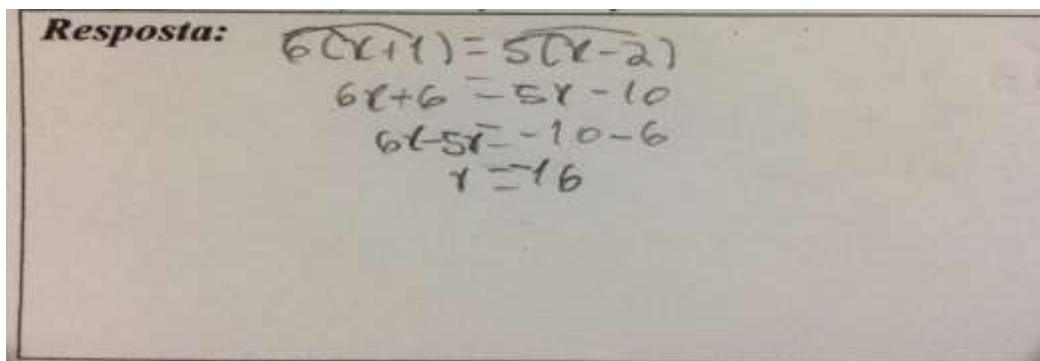 Resposta: 6(x+1) = 5(x-2)
6x+6 = 5x-10
6x-5x = -10-6
x = -16